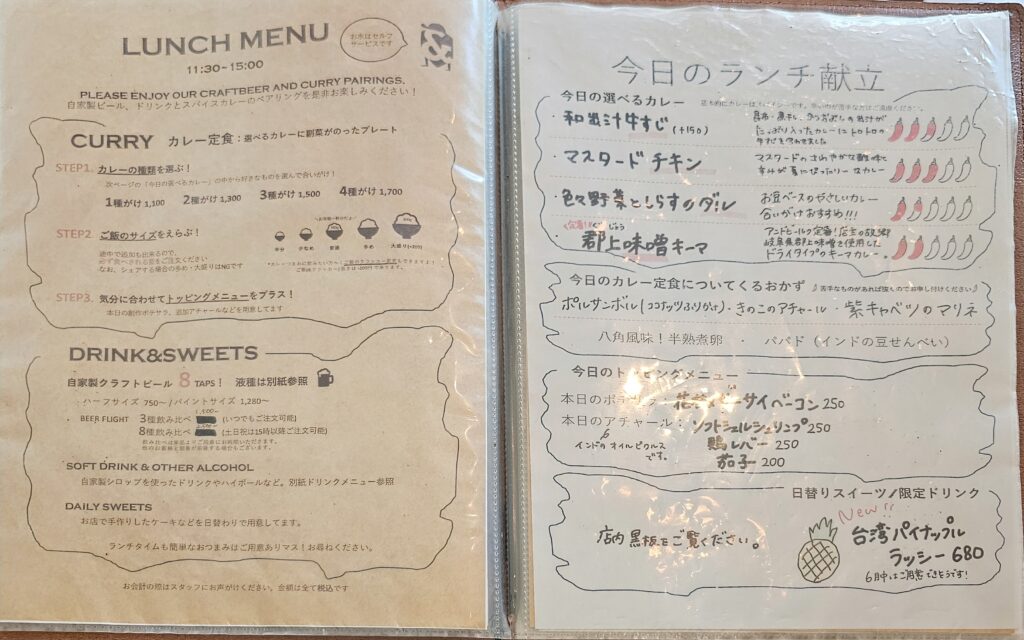 LUNCH MENU
お水はセルフ
サービスです
11:30~15:00
PLEASE ENJOY OUR CRAFTBEER AND CURRY PAIRINGS.
自家製ビール、ドリンクとスパイスカレーのペアリングを是非お楽しみください！
CURRY カレー定食：選べるカレーに副菜がのったプレート
STEP1. カレーの種類を選ぶ！
次ページの「今日の選べるカレー」の中から好きなものを選んで合いがけ！
1種がけ 1,100 2種がけ 1,300 3種がけ 1,500 4種がけ 1,700
STEP2. ご飯のサイズをえらぶ！
途中で追加も出来るので、
必ず食べきれる量をご注文ください
なお、シェアする場合の多め・大盛りはNGです
半分 少なめ 普通 多め 大盛り(+200)
STEP3. 気分に合わせてトッピングメニューをプラス！
本日の創作ポテサラ、追加アチャールなどを用意してます
DRINK&SWEETS
自家製クラフトビール 8 TAPS！ 液種は別紙参照
ハーフサイズ 750~/パイントサイズ 1,280~
BEER FLIGHT 3種飲み比べ (いつでもご注文可能)
8種飲み比べ (土日祝は15時以降ご注文可能)
SOFT DRINK & OTHER ALCOHOL
自家製シロップを使ったドリンクやハイボールなど。別紙ドリンクメニュー参照
DAILY SWEETS
お店で手作りしたケーキなどを日替わりで用意してます。
ランチタイムも簡単なおつまみはご用意ありマス！お尋ねください。
お会計の際はスタッフにお声がけください。金額は全て税込です
今日のランチ献立
今日の選べるカレー
・和出汁牛すじ (+150)
昆布・煮干し、かつおぶしの出汁が
たっぷり入ったカレーにトロトロの
牛すじを合わせました
・マスタードチキン
マスタードのさわやかな酸味と
辛みが夏にぴったりーなカレー
・色々野菜としらすのダール
お豆ベースのやさしいカレー
合いがけおすすめ!!!
・郡上味噌キーマ
ぐじょう
アンドビールの定番！店主の故郷
岐阜県郡上味噌を使用した
ドライタイプのキーマカレー。
今日のカレー定食についてくるおかず
苦手なものがあれば抜くのでお申し付けください
ポルサンボル(ココナッツふりかけ)・きのこのアチャール・紫キャベツのマリネ
八角風味！半熟煮卵 ・ パパド（インドの豆せんべい）
今日のトッピングメニュー
本日のポテサラ：サイベーコン 250
本日のアチャール：ソフトシェルシュリンプ 250
インドのオイルピクルス
です。
鴨レバー 250
茄子 200
日替りスイーツ/限定ドリンク
店内黒板をご覧ください。
New!!
台湾パイナップル
ラッシー 680
6月中はご用意できそうです！